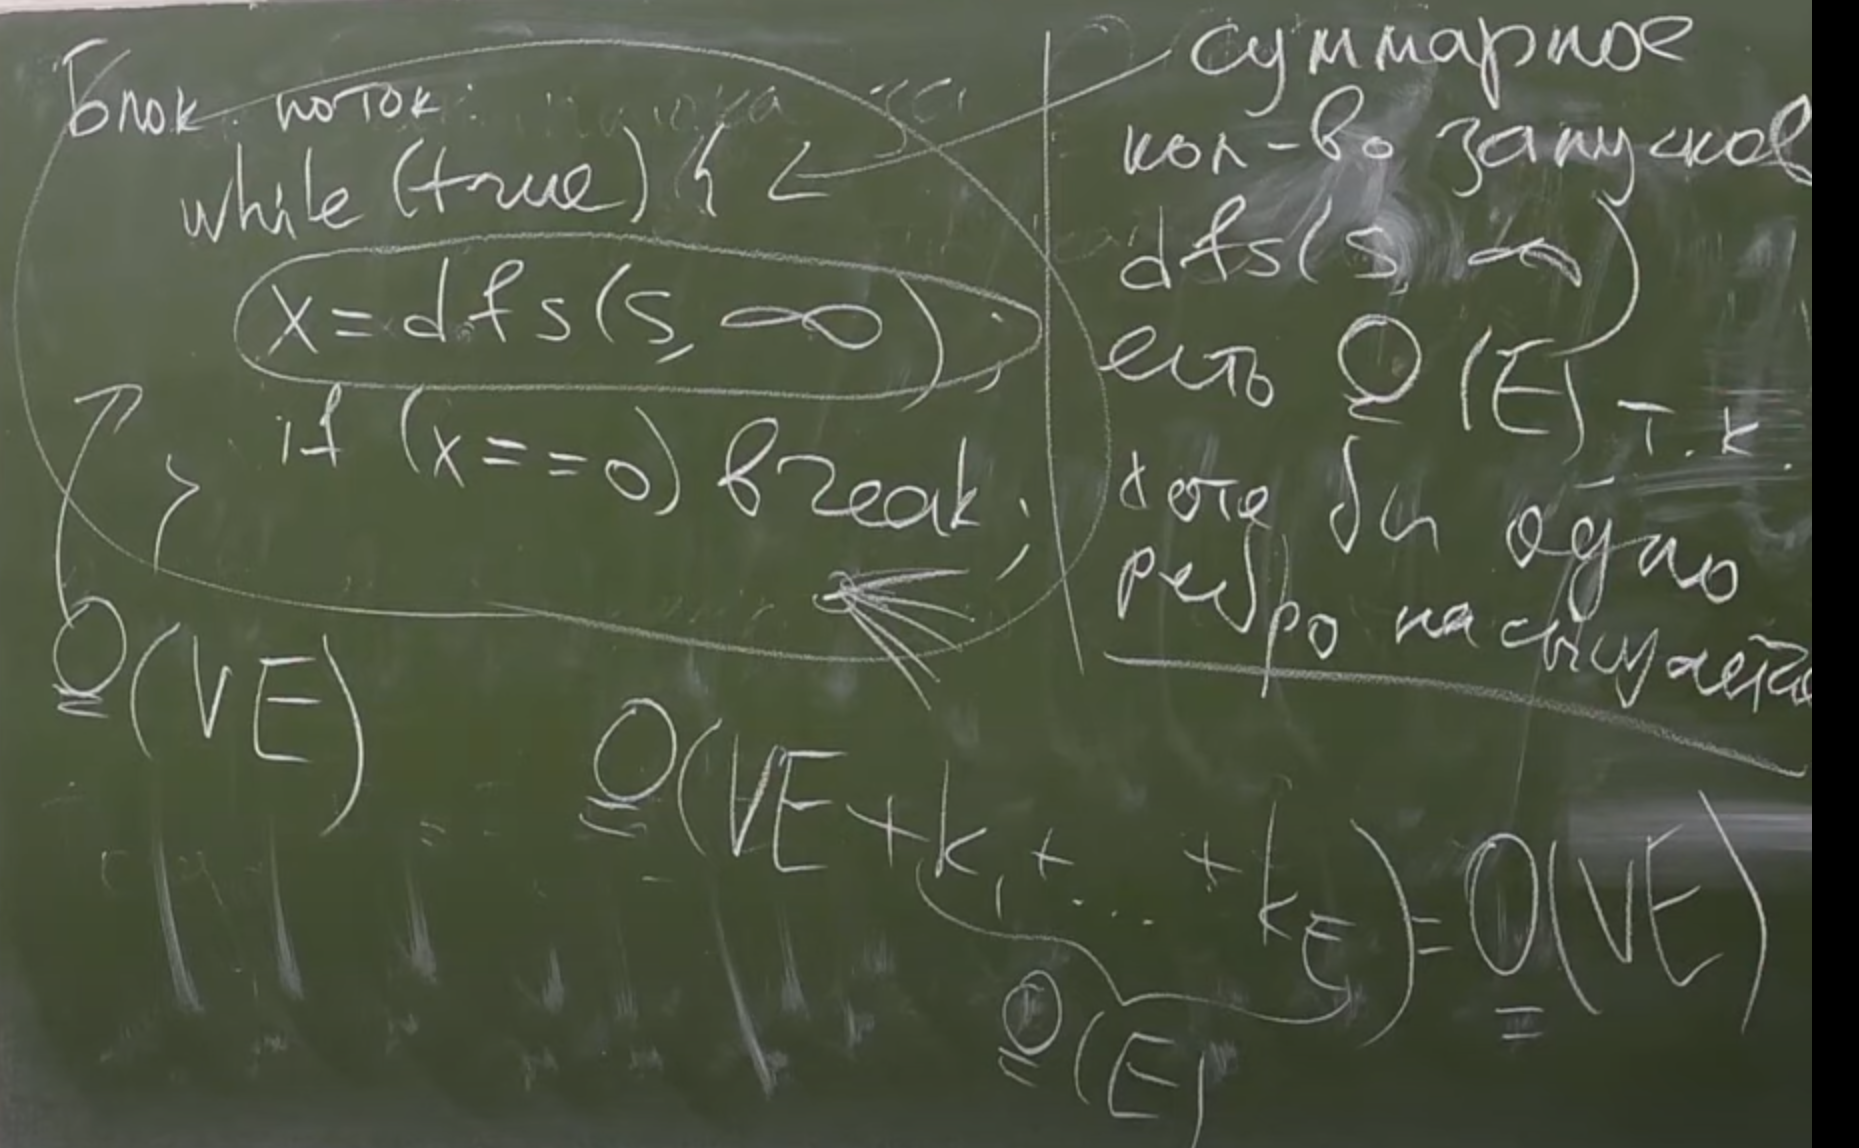 Блок. поток:
while (true) {
x = dfs(s, ∞);
if (x == 0) break;
}
O(VE)
суммарное
кол-во запусков
dfs(s, ∞)
есть O(E) т.к.
хотя бы одно
ребро насыщается
= O(VE + k₁ + ... + k_E) = O(VE)
O(E)